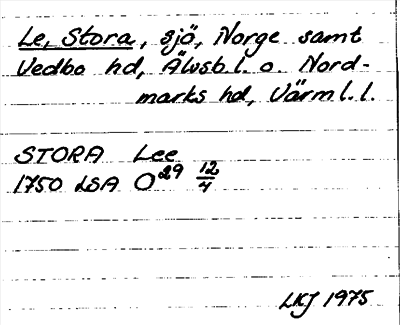 Le, Stora, sjö, Norge samt
Vedbo hd, Älvsb. l. o. Nord-
marks hd, Värml. l.
STORA Lee
1750 LSA O29 12/4
LKJ 1975